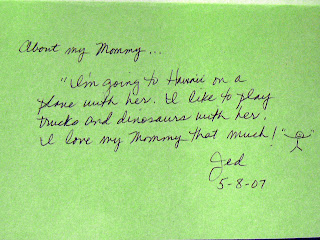 About my Mommy...
"I'm going to Hawaii on a
plane with her. I like to play
trucks and dinosaurs with her.
I love my Mommy that much!"
Jed
5-8-07